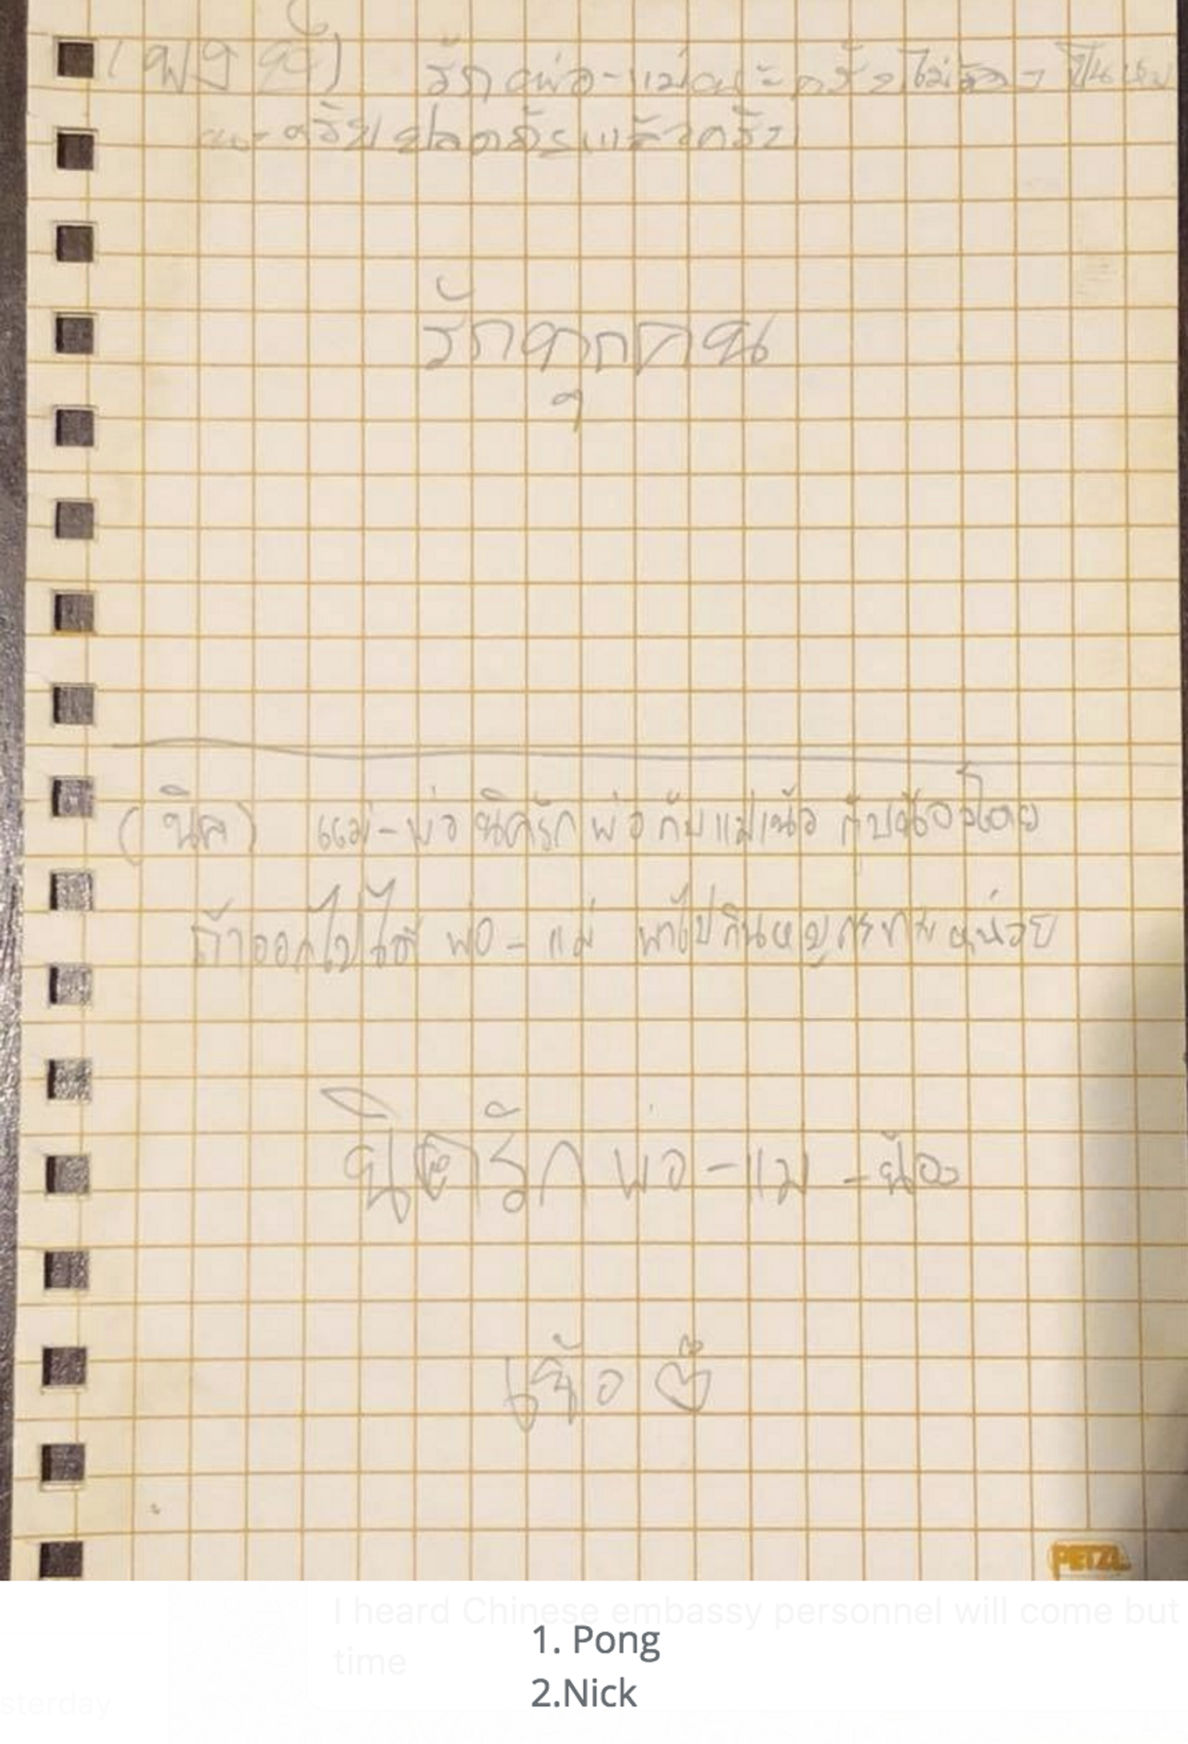 รักพ่อ-แม่นะครับไม่ต้อง
นะครับปลอดภัยแล้วครับ
รักทุกคน
(นิค) แม่-พ่อ นิครัก พ่อ กับแม่เน้อ กับน้องโตย
ถ้าออกไปได้ พ่อ-แม่ พาไปกินหมูกระทะหน่อย
นิครัก พ่อ-แม่-น้อง
เน้อ
PETZL
I heard Chinese embassy personnel will come but
time
sterday
1. Pong
2.Nick